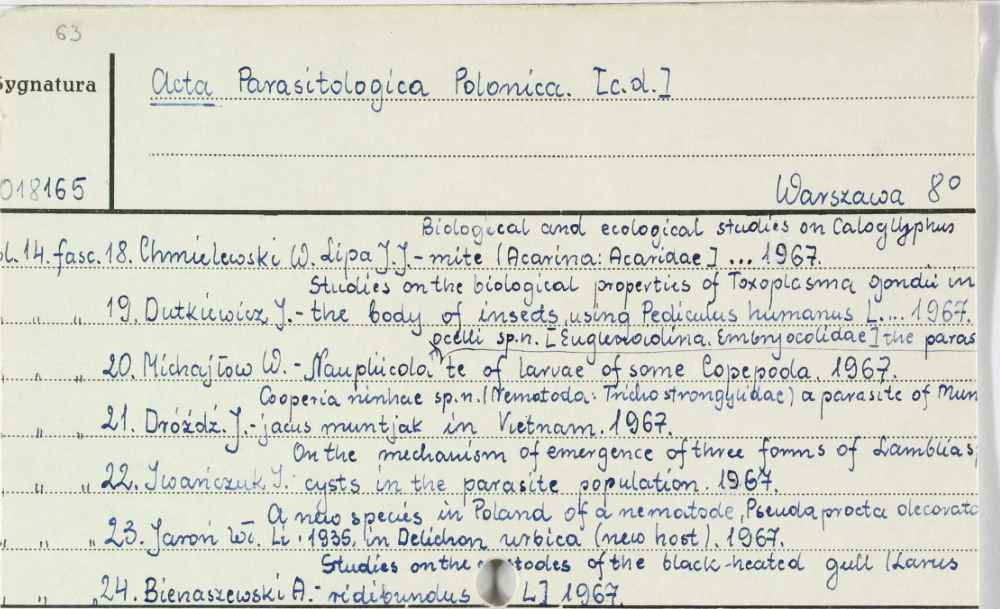 63
Sygnatura
Acta Parasitologica Polonica. [c.d.]
018165
Warszawa 8°
Biological and ecological studies on Caloglyphus
ol. 14. fasc. 18. Chmielewski W. Lipa J.J. - mite (Acarina: Acaridae] ... 1967.
Studies on the biological properties of Toxoplasma gondii in
" " 19. Dutkiewicz J. - the body of insects, using Pediculus humanus L.... 1967.
ocelli sp.n. [Euglenoidina. Embryocolidae] the paras
" " 20. Michajłow W. - Nauplicola te of larvae of some Copepoda. 1967.
Cooperia ninhae sp.n. (Nematoda: Trichostrongylidae) a parasite of Mun
" " 21. Dróżdż. J. - jacus muntjak in Vietnam. 1967.
On the mechanism of emergence of three forms of Lamblias
" " 22. Iwańczuk I. - cysts in the parasite population. 1967.
A new species in Poland of a nematode, Pseudaprocta decorata
" " 23. Jaroń Wł. Li. 1935, in Delichon urbica (new host). 1967.
Studies on the todes of the black-heated gull (Larus
" " 24. Bienaszewski A. - ridibundus L] 1967.